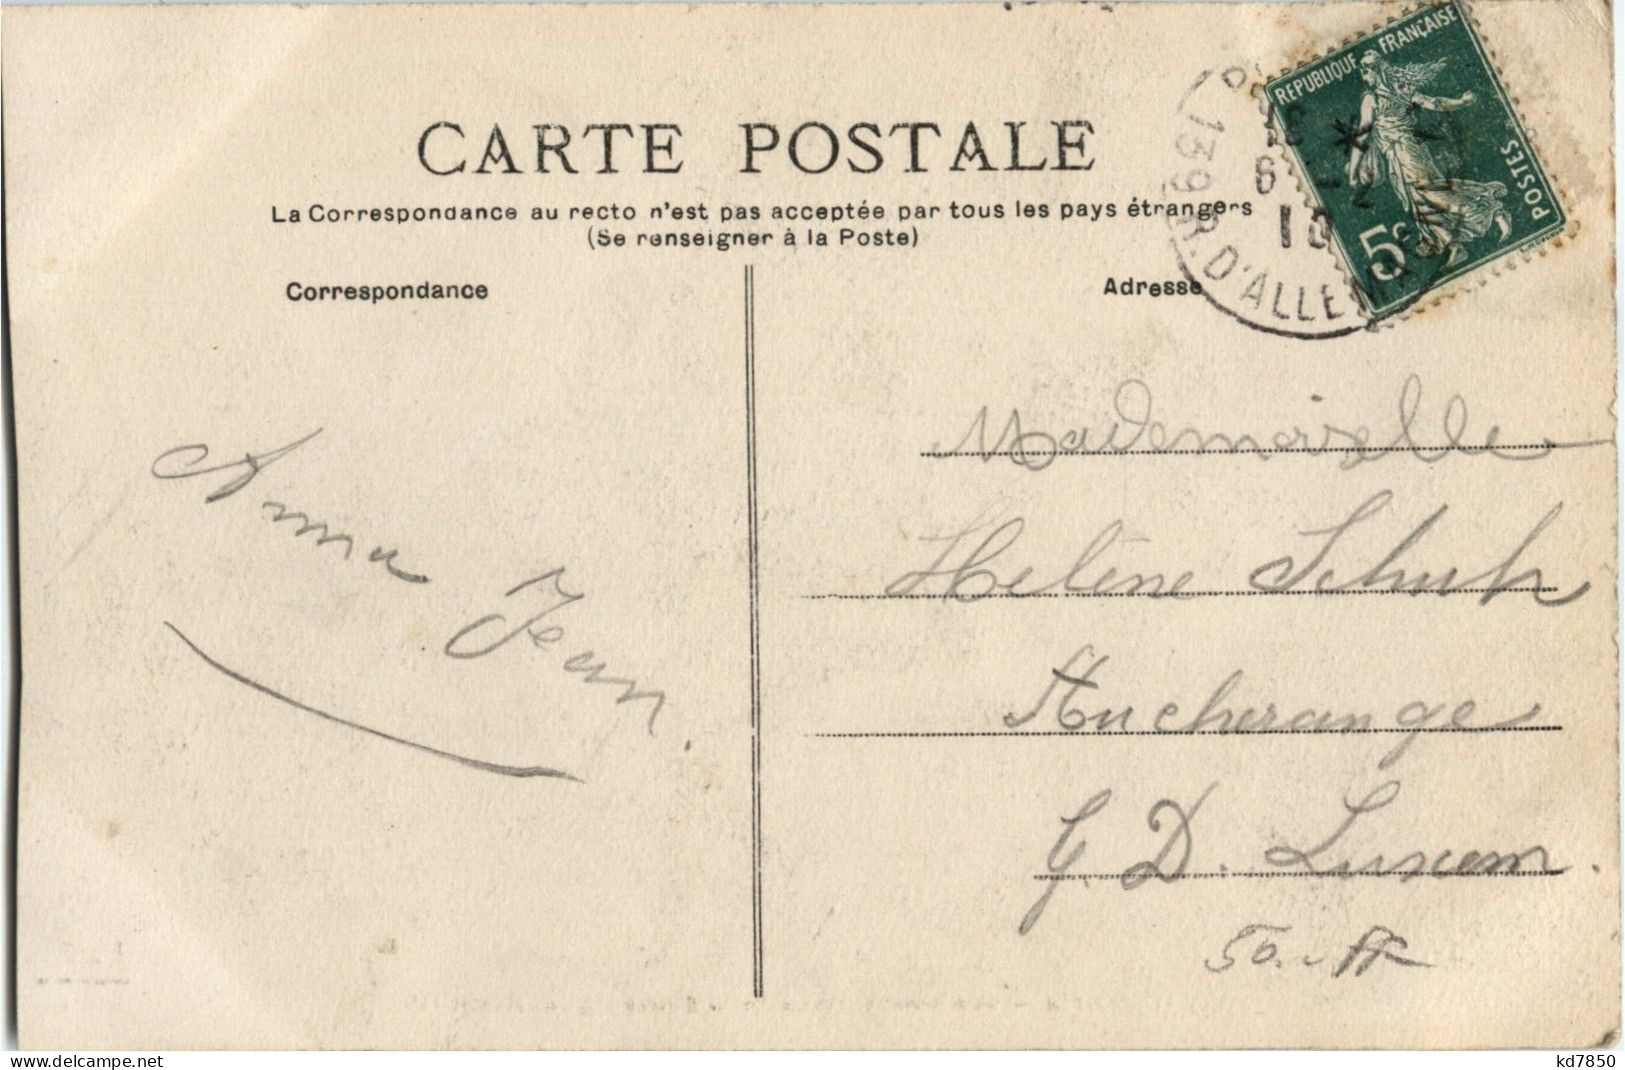 CARTE POSTALE
La Correspondance au recto n'est pas acceptée par tous les pays étrangers
(Se renseigner à la Poste)
Correspondance
Adresse
REPUBLIQUE FRANÇAISE
POSTES
5c
139 R. D'ALLEMA
6 -2
10
Anna Jean.
Mademoiselle
Helène Schuh
Hucherange
G. D. Luxem.
50.-
kd7850